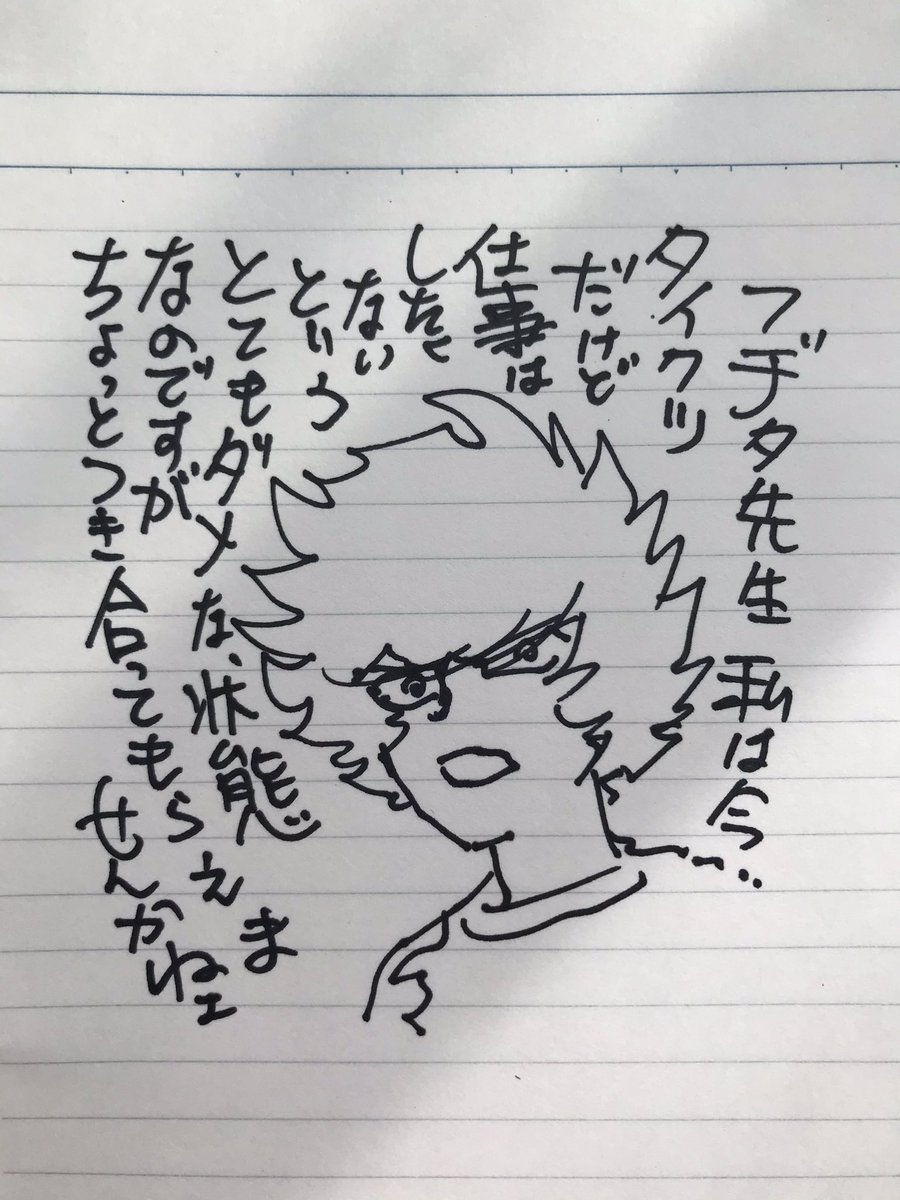 フデタ先生 私は今‥
タイクツ
だけど
仕事は
したく
ない
という
とてもダメな、状態
なのですが
ちょっとつき合ってもらえま
せんかねェ